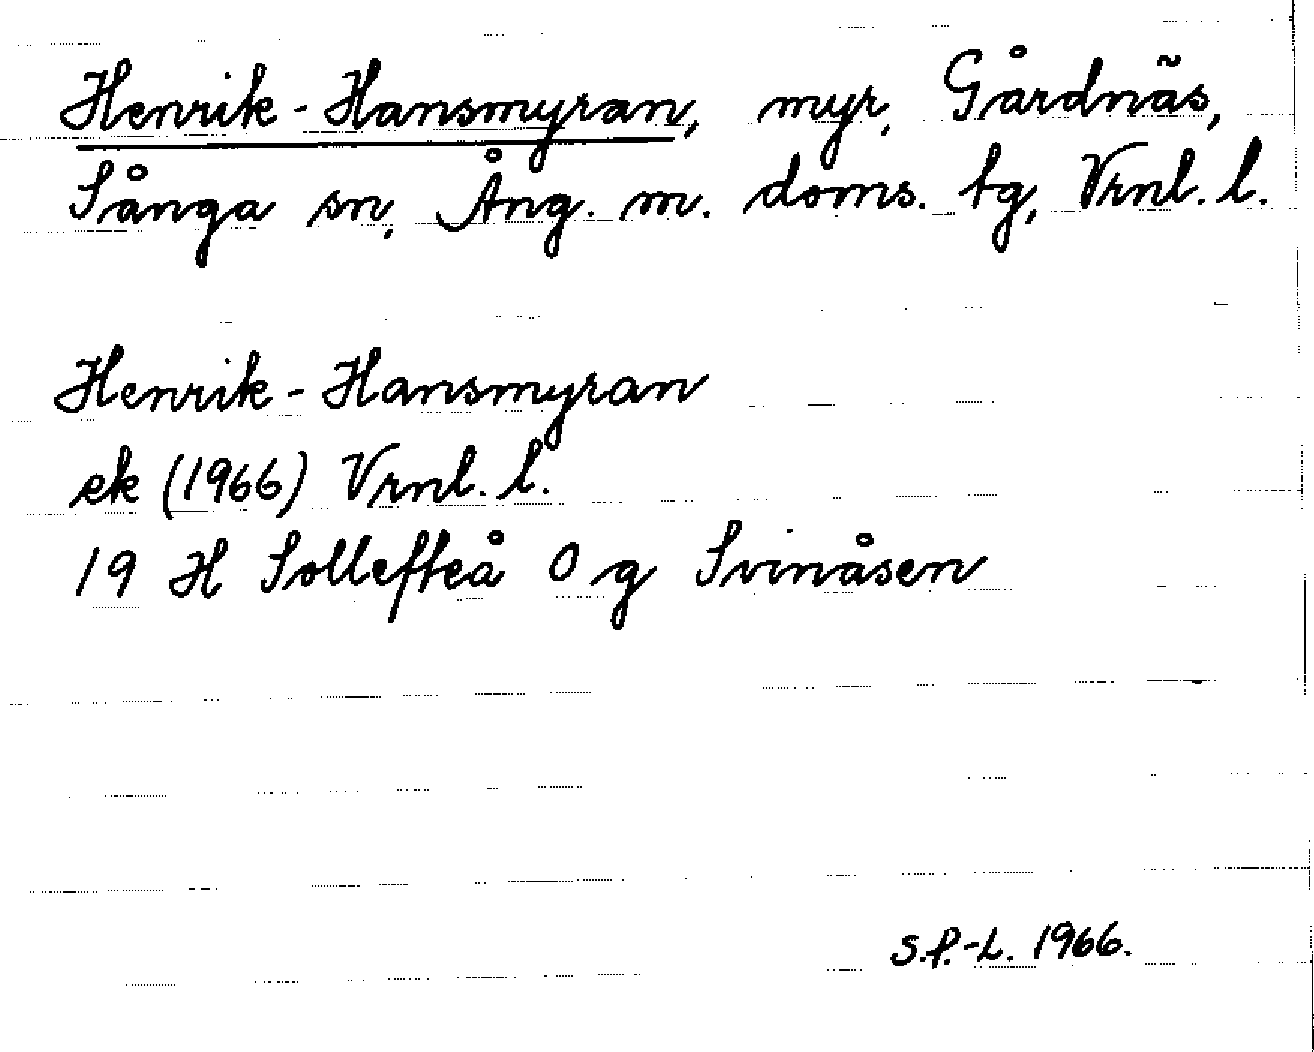 Henrik-Hansmyran, myr, Gårdnäs,
Sånga sn, Ång. m. doms. tg, Vrnl. l.
Henrik-Hansmyran
ek (1966) Vrnl. l.
19 H Sollefteå 0 g Svinåsen
S.P.-L. 1966.